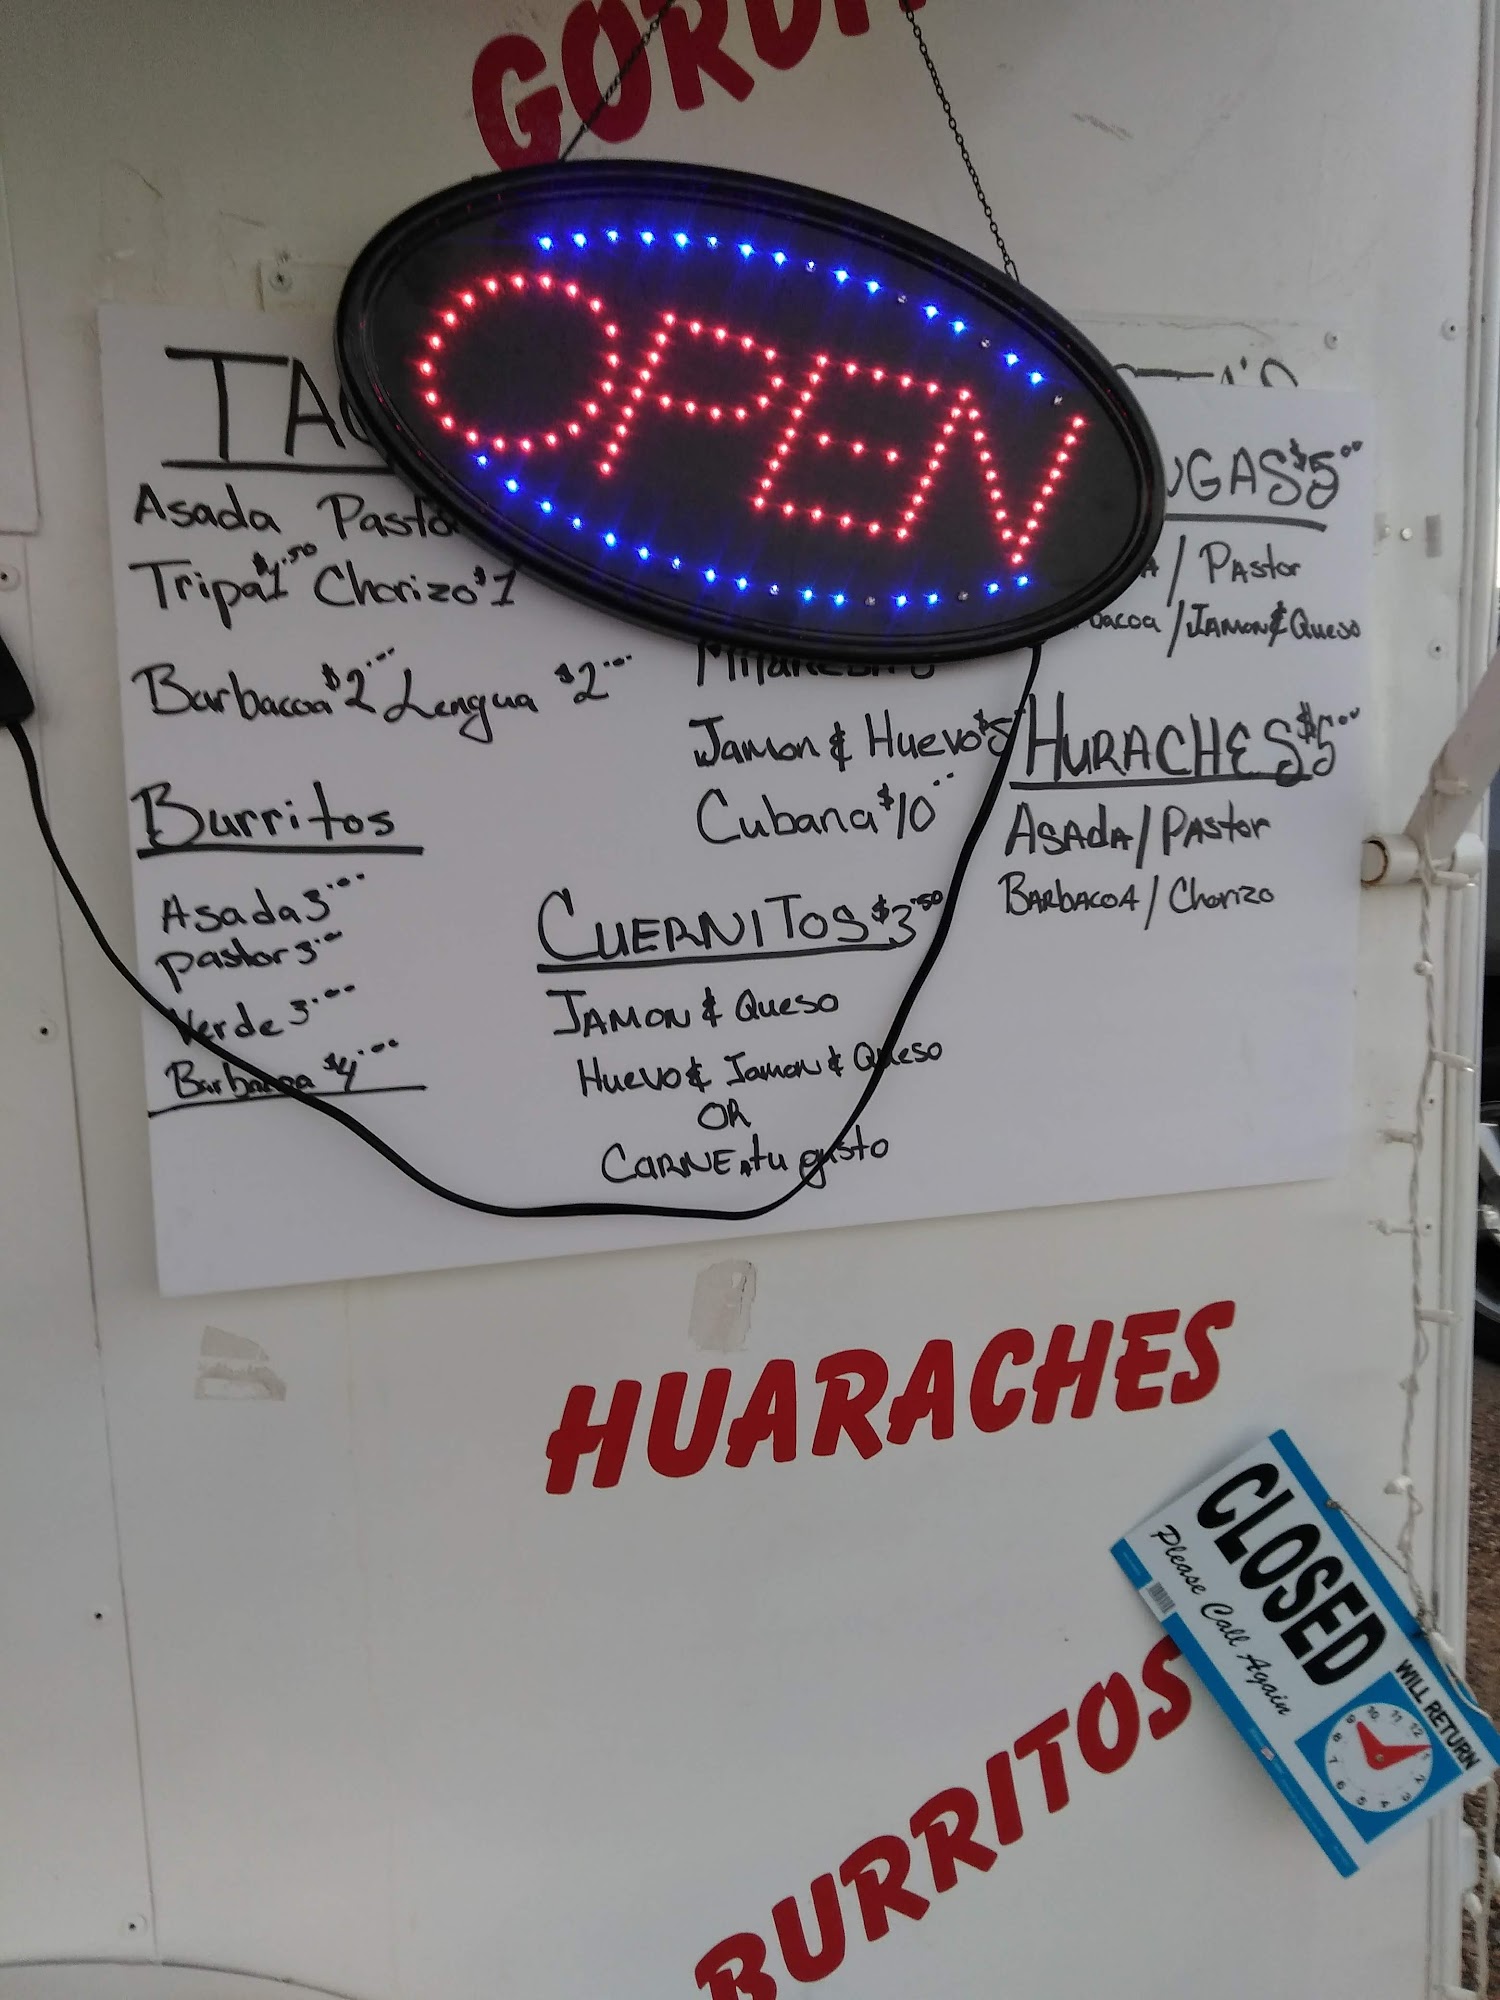 OPEN
Asada
Tripa $1.50 Chorizo $1
Barbacoa $2.00 Lengua $2.00
Burritos
Asada 3.00
pastor 3.00
Verde 3.00
Barbacoa $4.00
Jamon & Huevo $5
Cubana $10
CUERNITOS $3.50
JAMON & Queso
HUEVO & Jamon & Queso
OR
CARNE A tu gusto
$5.00
/ PAstor
/ JAMON & Queso
HURACHES $5.00
ASAdA / PAStor
BARbACOA / Chorizo
HUARACHES
BURRITOS
CLOSED
Please Call Again
WILL RETURN